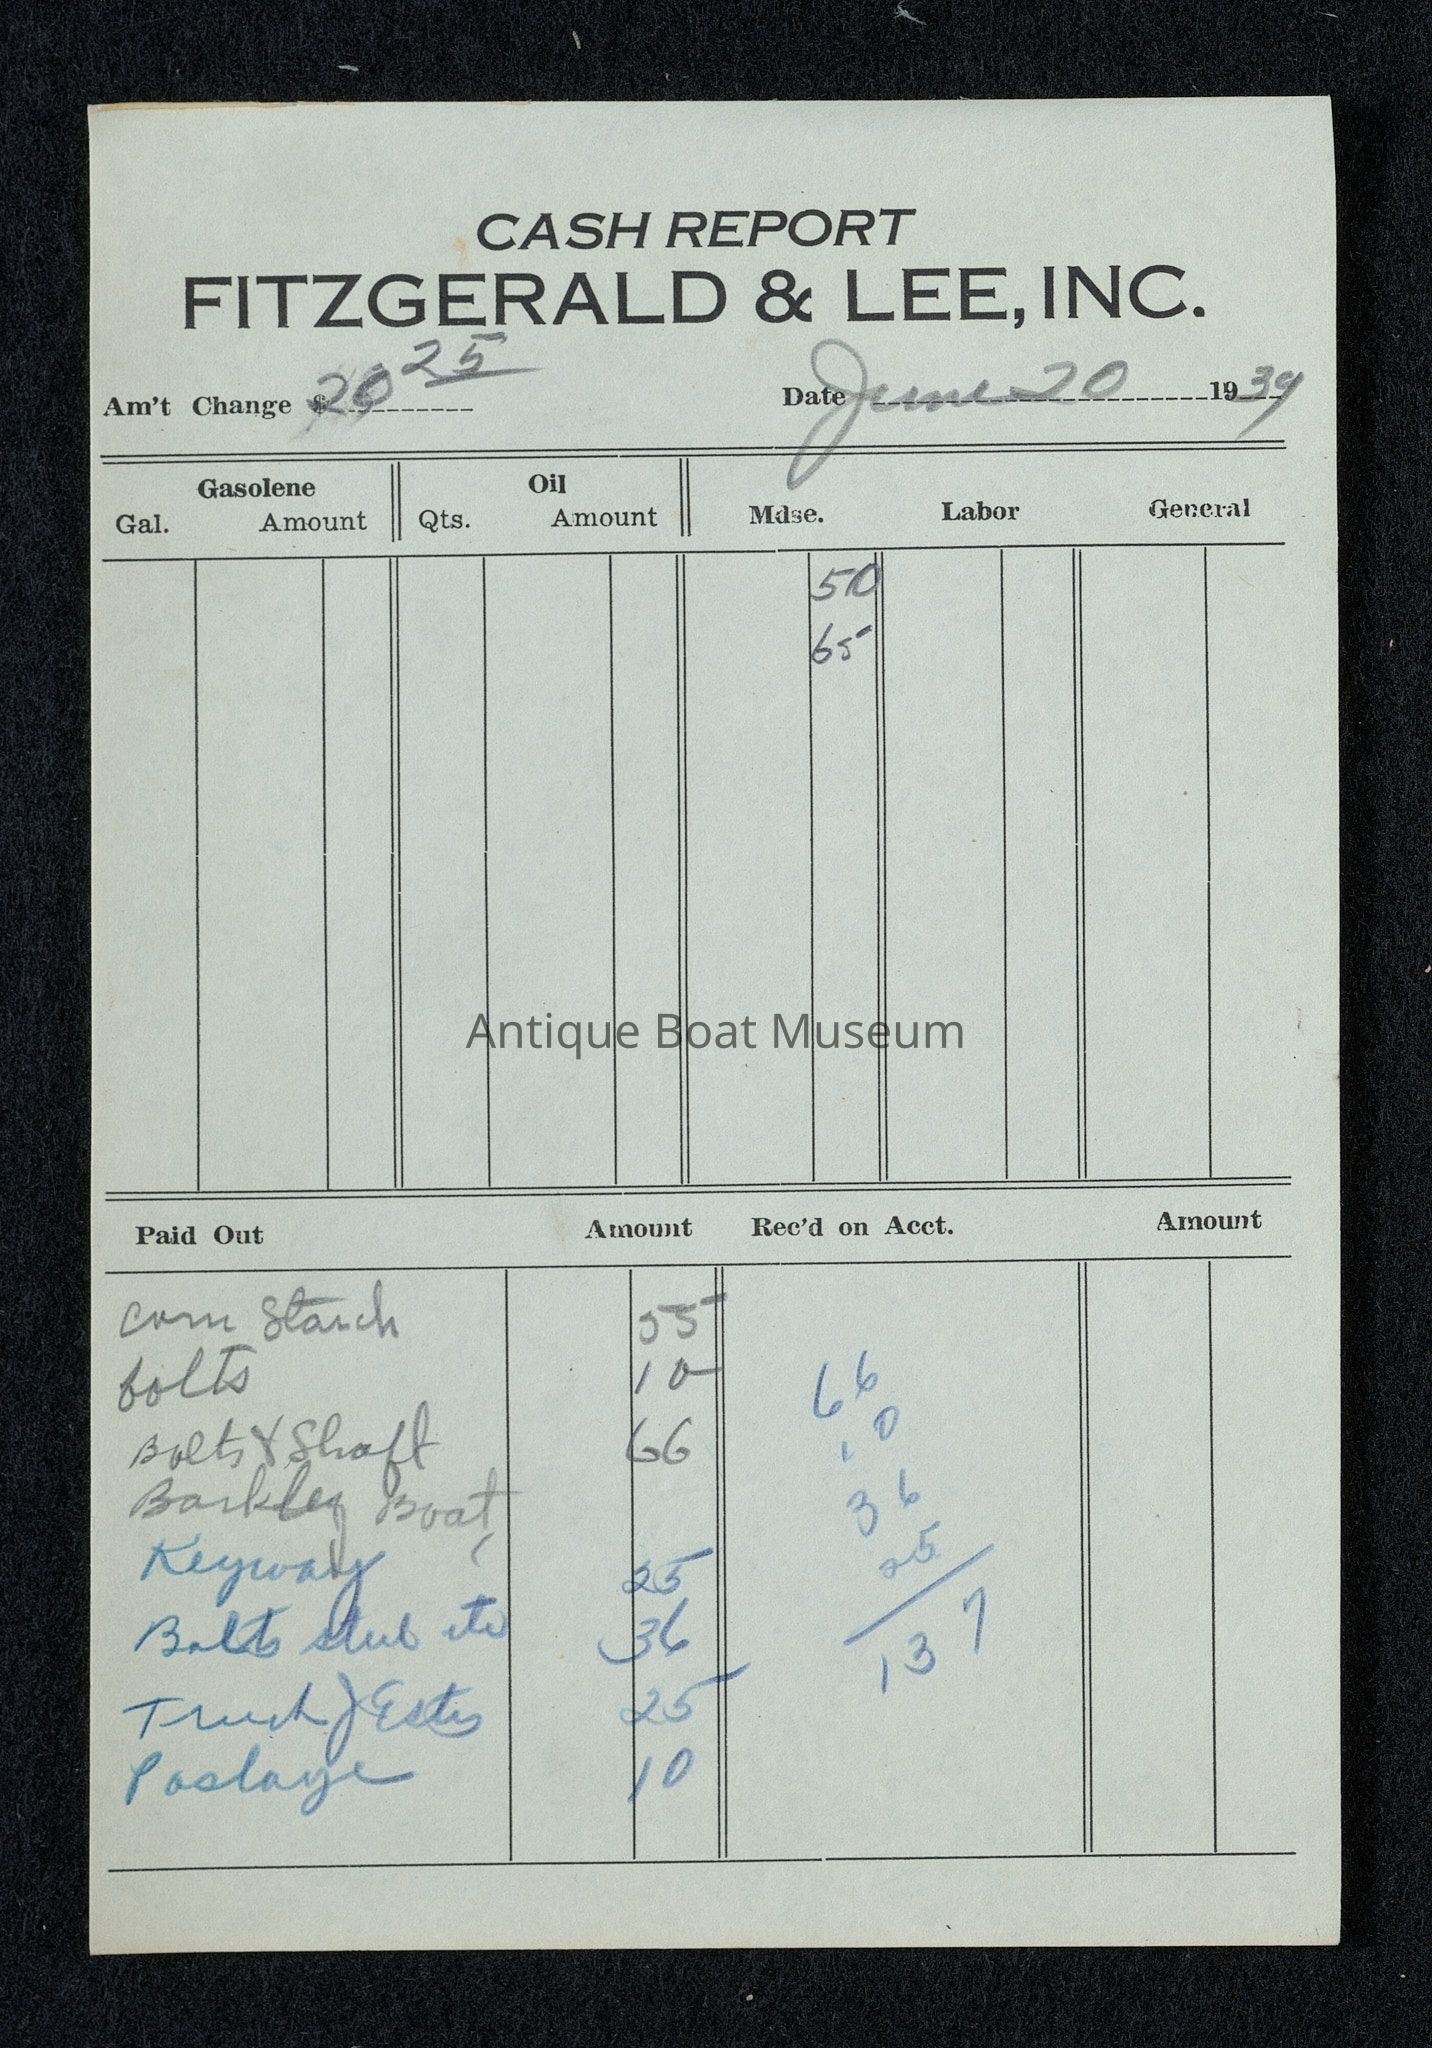 CASH REPORT
FITZGERALD & LEE, INC.
Am't Change $ 20 25
Date June 20 1939
Gasolene Oil
Gal. Amount Qts. Amount Mdse. Labor General
50
65
Antique Boat Museum
Paid Out Amount Rec'd on Acct. Amount
Corn Starch 55
bolts 10
Bolts & Shaft 66
Barkley Boat
Keyway 25
Bolts stub etc 36
Truck J Estes 25
Postage 10
66
10
36
25
137